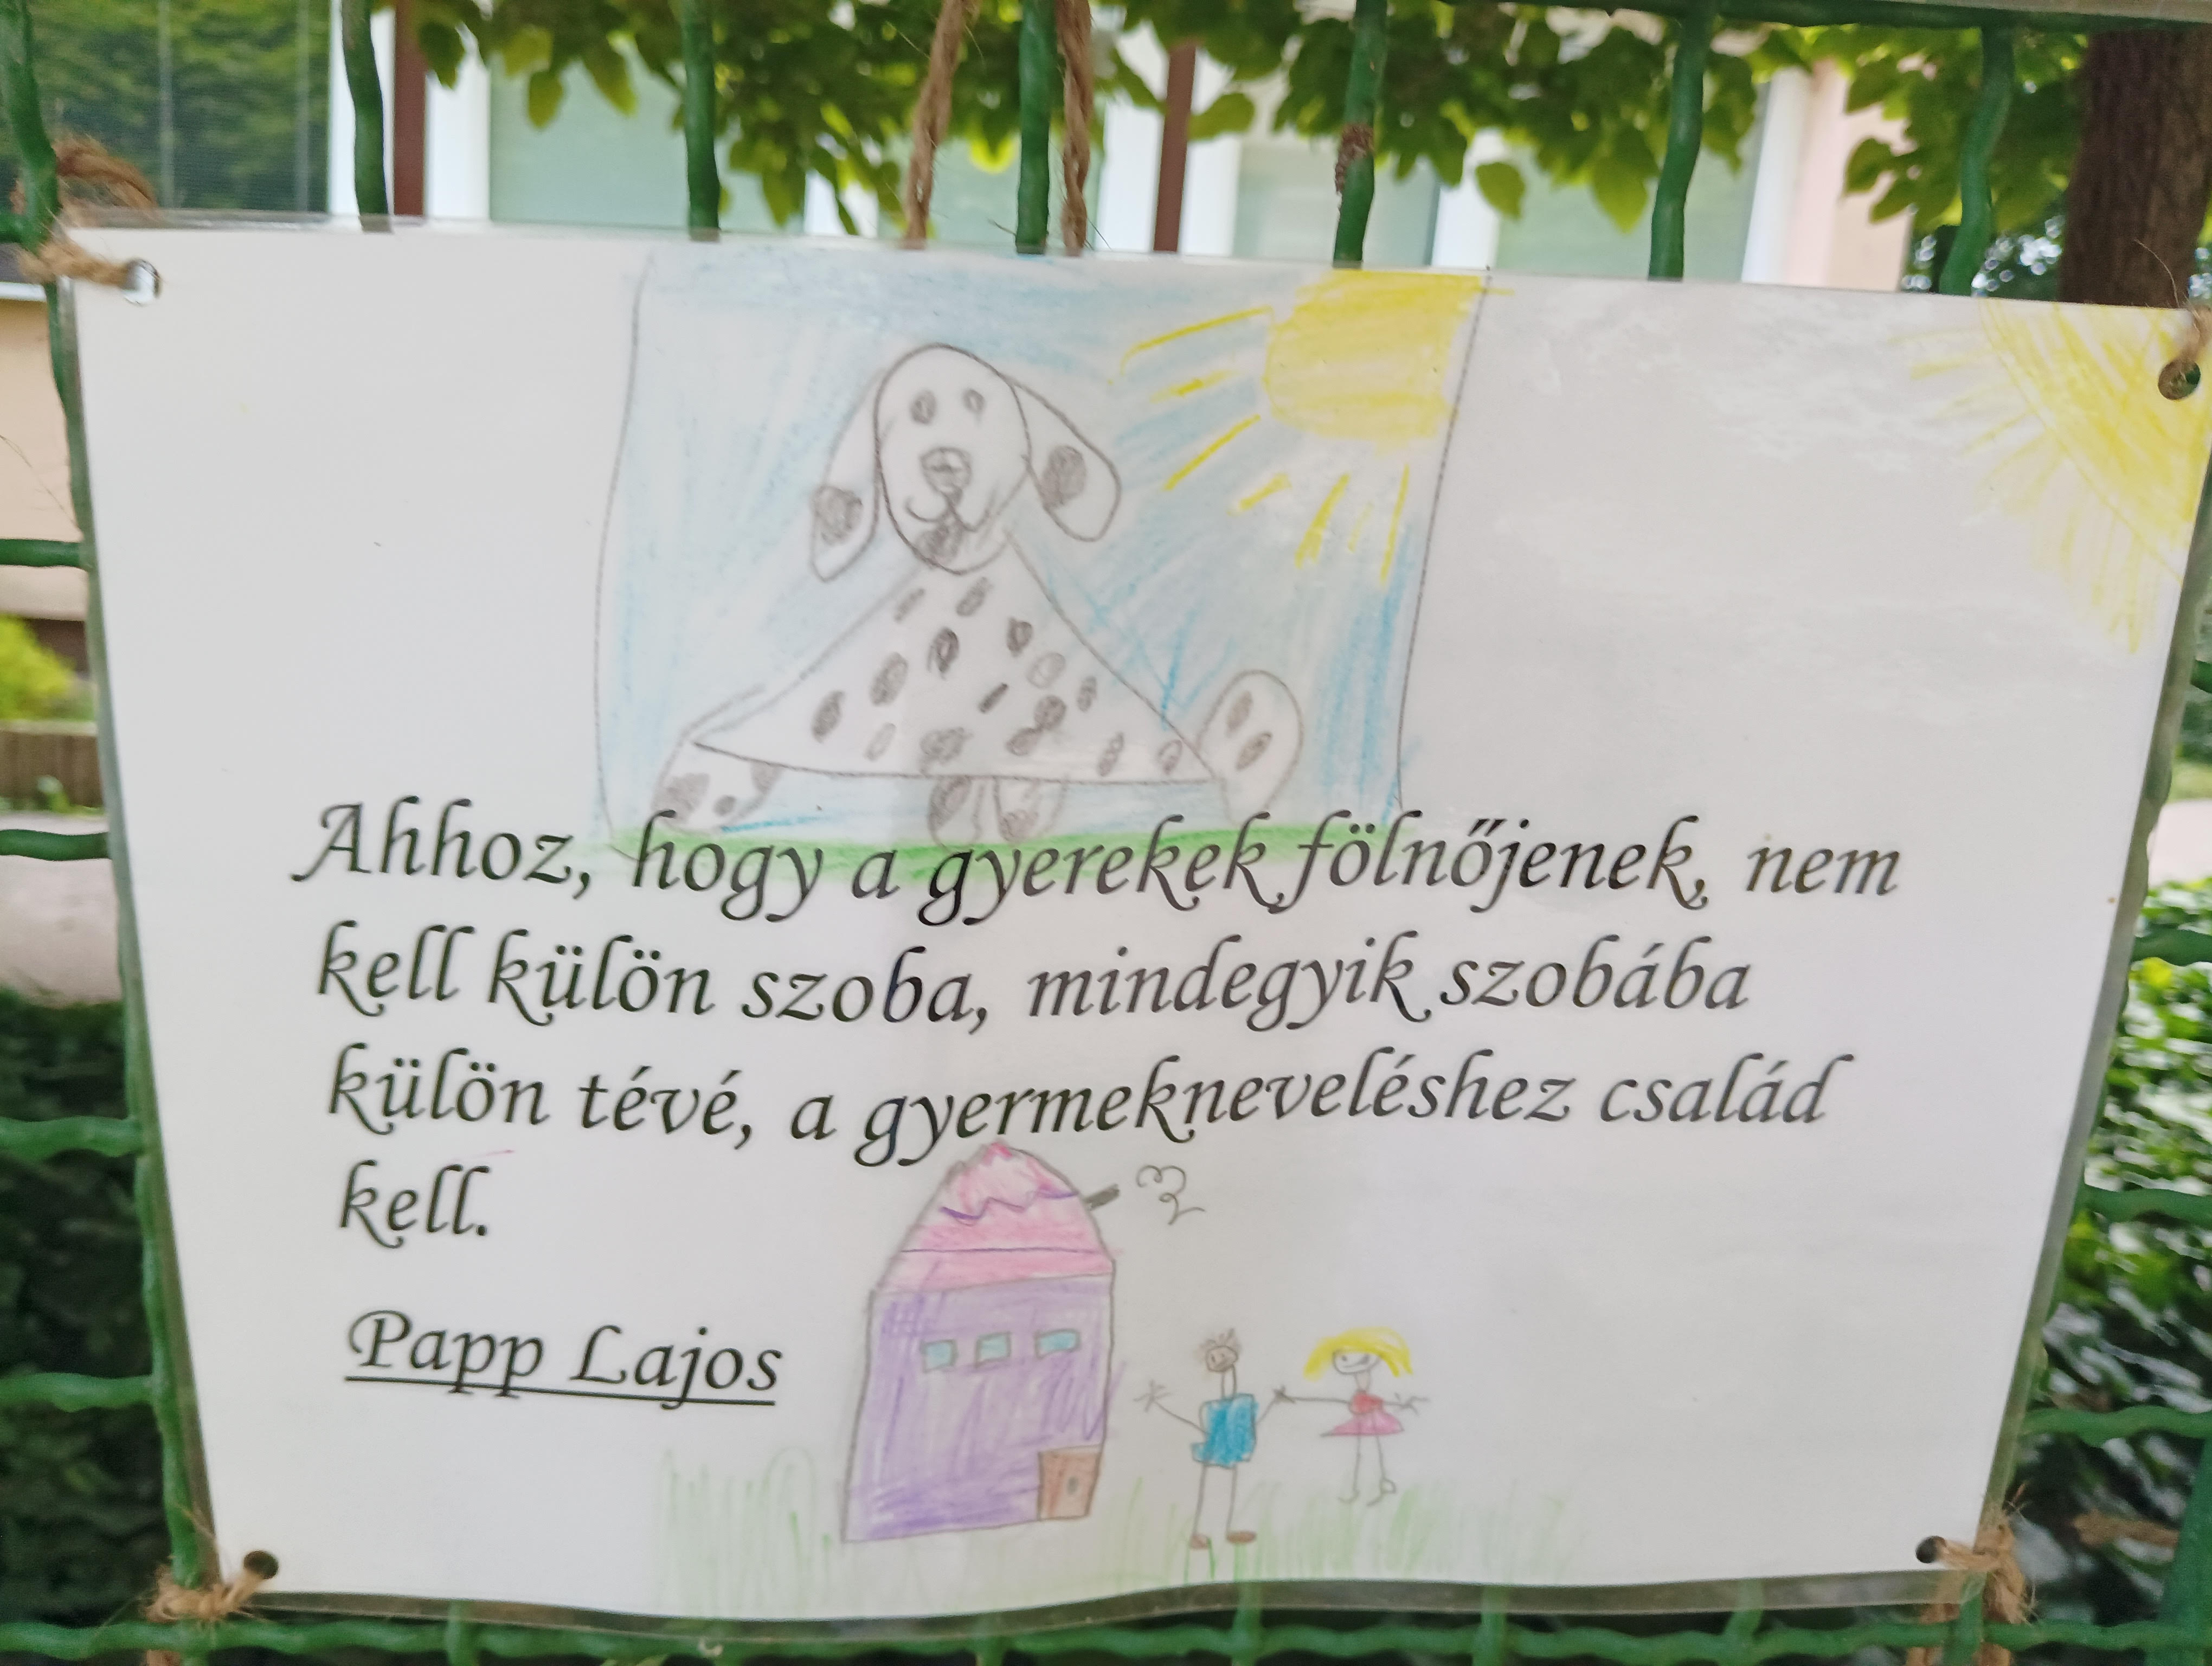 Ahhoz, hogy a gyerekek fölnőjenek, nem
kell külön szoba, mindegyik szobába
külön tévé, a gyermekneveléshez család
kell.
Papp Lajos